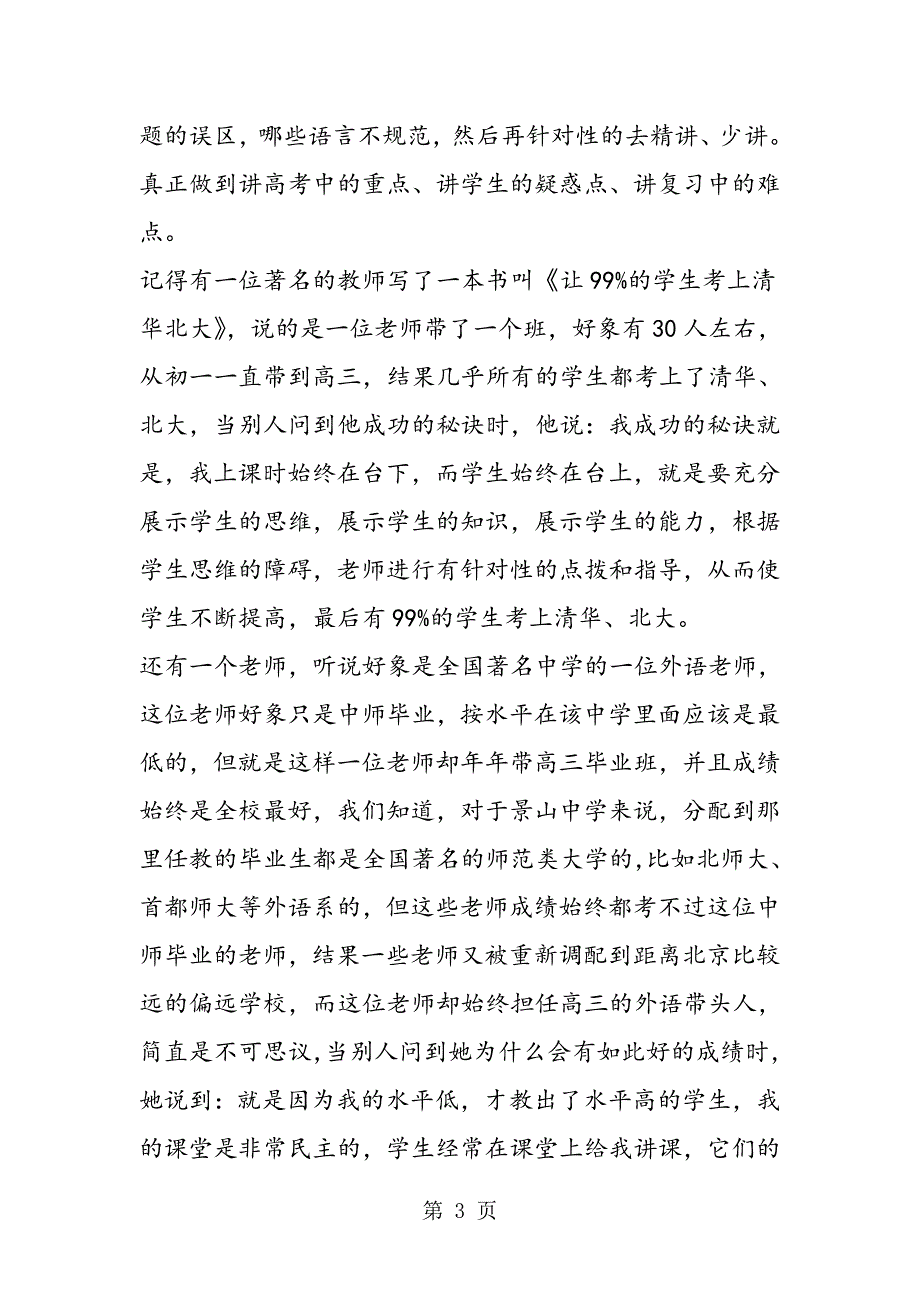 题的误区，哪些语言不规范，然后再针对性的去精讲、少讲。
真正做到讲高考中的重点、讲学生的疑惑点、讲复习中的难
点。
记得有一位著名的教师写了一本书叫《让99%的学生考上清
华北大》，说的是一位老师带了一个班，好象有30人左右，
从初一一直带到高三，结果几乎所有的学生都考上了清华、
北大，当别人问到他成功的秘诀时，他说：我成功的秘诀就
是，我上课时始终在台下，而学生始终在台上，就是要充分
展示学生的思维，展示学生的知识，展示学生的能力，根据
学生思维的障碍，老师进行有针对性的点拨和指导，从而使
学生不断提高，最后有99%的学生考上清华、北大。
还有一个老师，听说好象是全国著名中学的一位外语老师，
这位老师好象只是中师毕业，按水平在该中学里面应该是最
低的，但就是这样一位老师却年年带高三毕业班，并且成绩
始终是全校最好，我们知道，对于景山中学来说，分配到那
里任教的毕业生都是全国著名的师范类大学的,比如北师大、
首都师大等外语系的，但这些老师成绩始终都考不过这位中
师毕业的老师，结果一些老师又被重新调配到距离北京比较
远的偏远学校，而这位老师却始终担任高三的外语带头人，
简直是不可思议,当别人问到她为什么会有如此好的成绩时，
她说到：就是因为我的水平低，才教出了水平高的学生，我
的课堂是非常民主的，学生经常在课堂上给我讲课，它们的
第 3 页